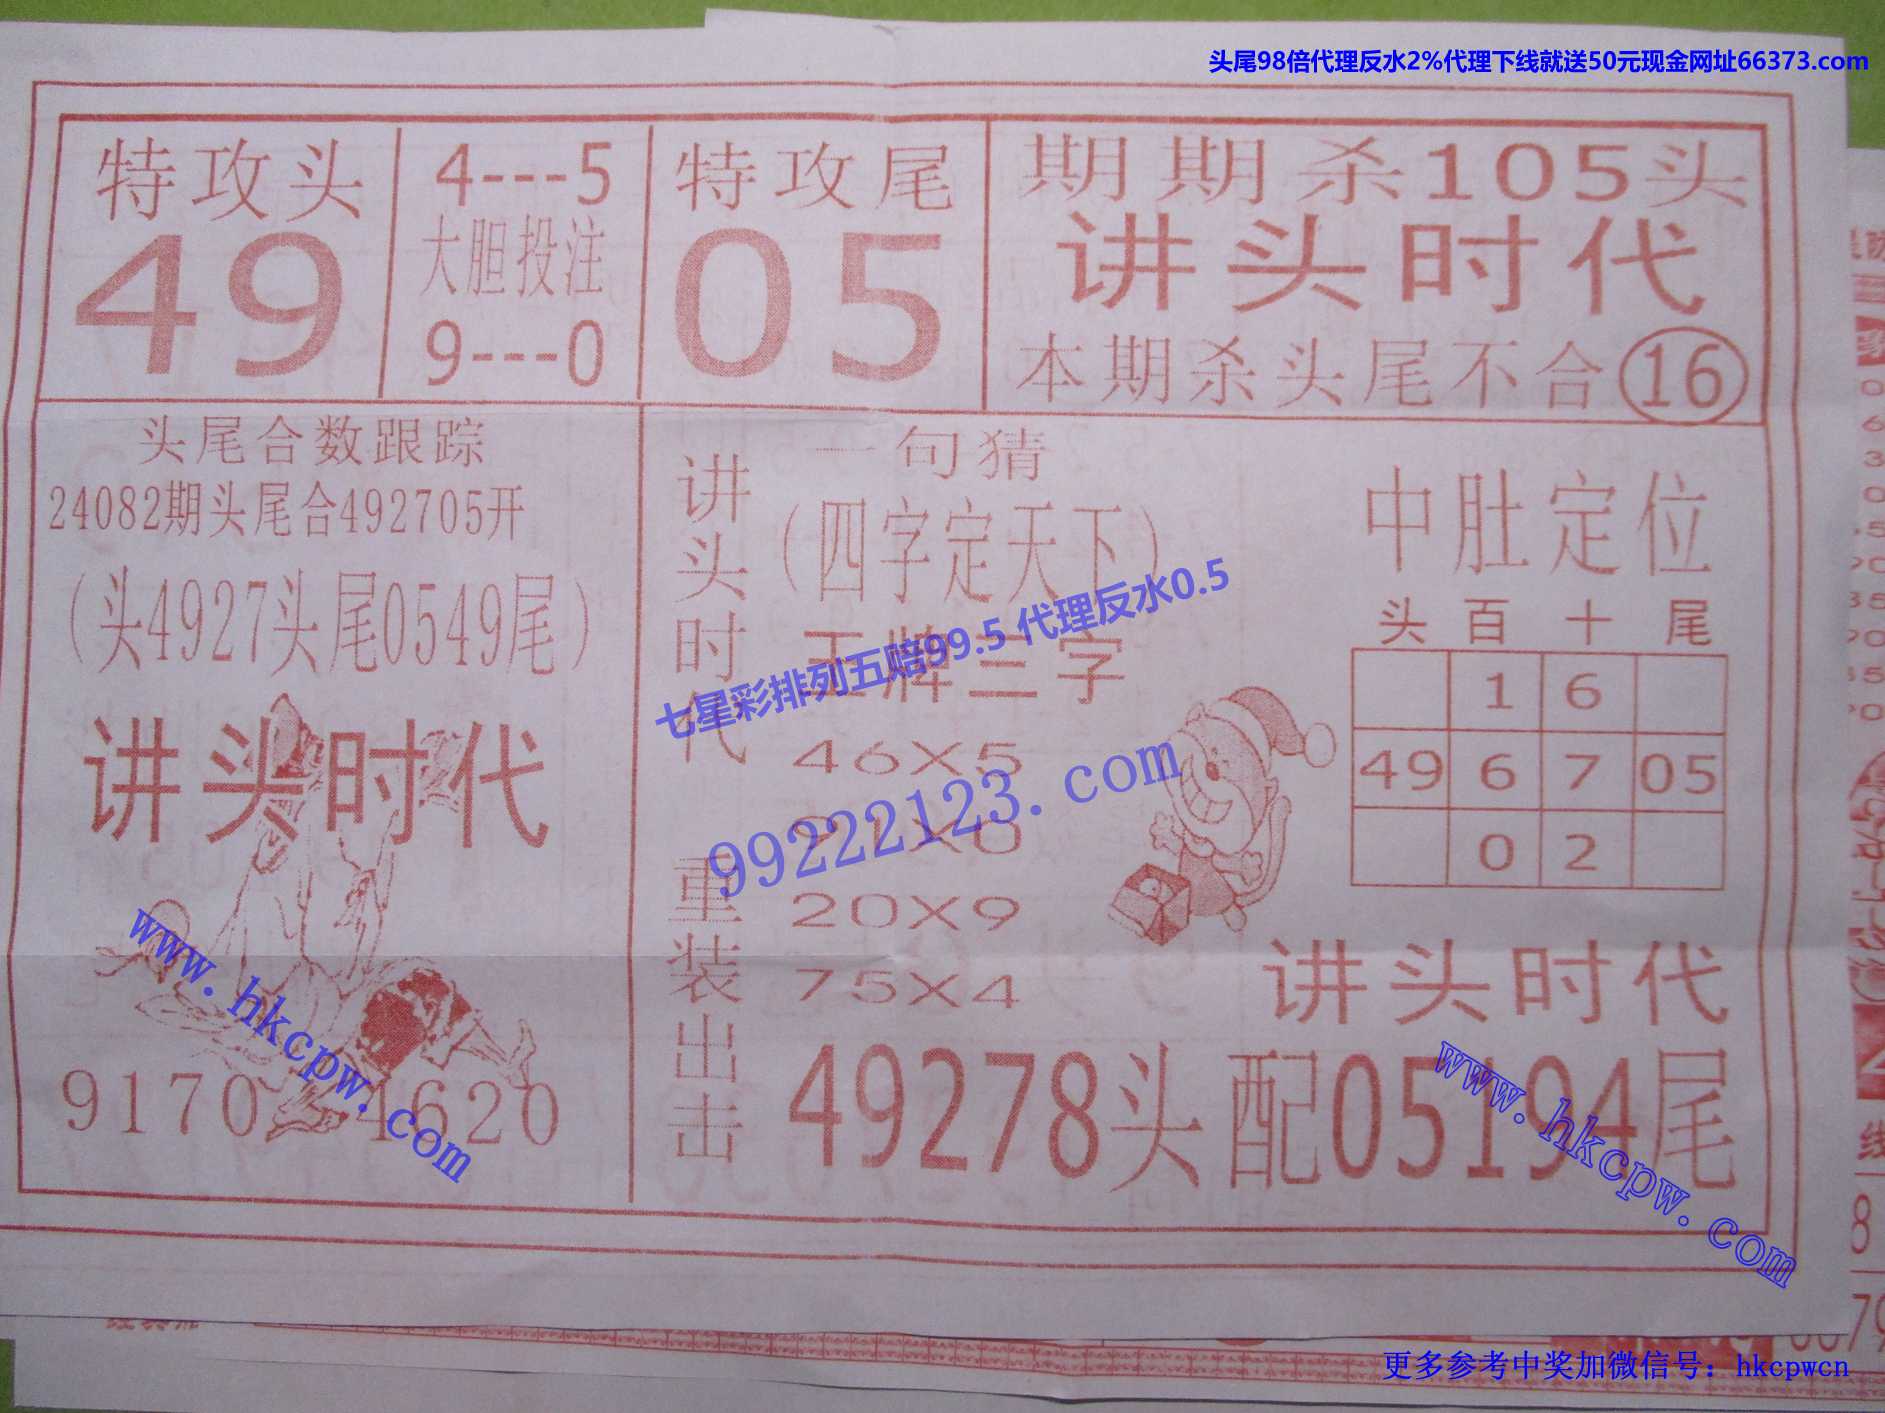 头尾98倍代理反水2%代理下线就送50元现金网址66373.com
特攻头
49
4---5
大胆投注
9---0
特攻尾
05
期期杀105头
讲头时代
本期杀头尾不合16
头尾合数跟踪
24082期头尾合492705开
(头4927头尾0549尾)
讲头时代
9170 4620
讲头时代
重装出击
一句猜
(四字定天下)
王牌三字
46X5
91X0
20X9
75X4
七星彩排列五赔99.5 代理反水0.5
99222123.com
中肚定位
头 百 十 尾
1 6
49 6 7 05
0 2
讲头时代
49278头配05194尾
www.hkcpw.com
www.hkcpw.com
8
更多参考中奖加微信号：hkcpwcn